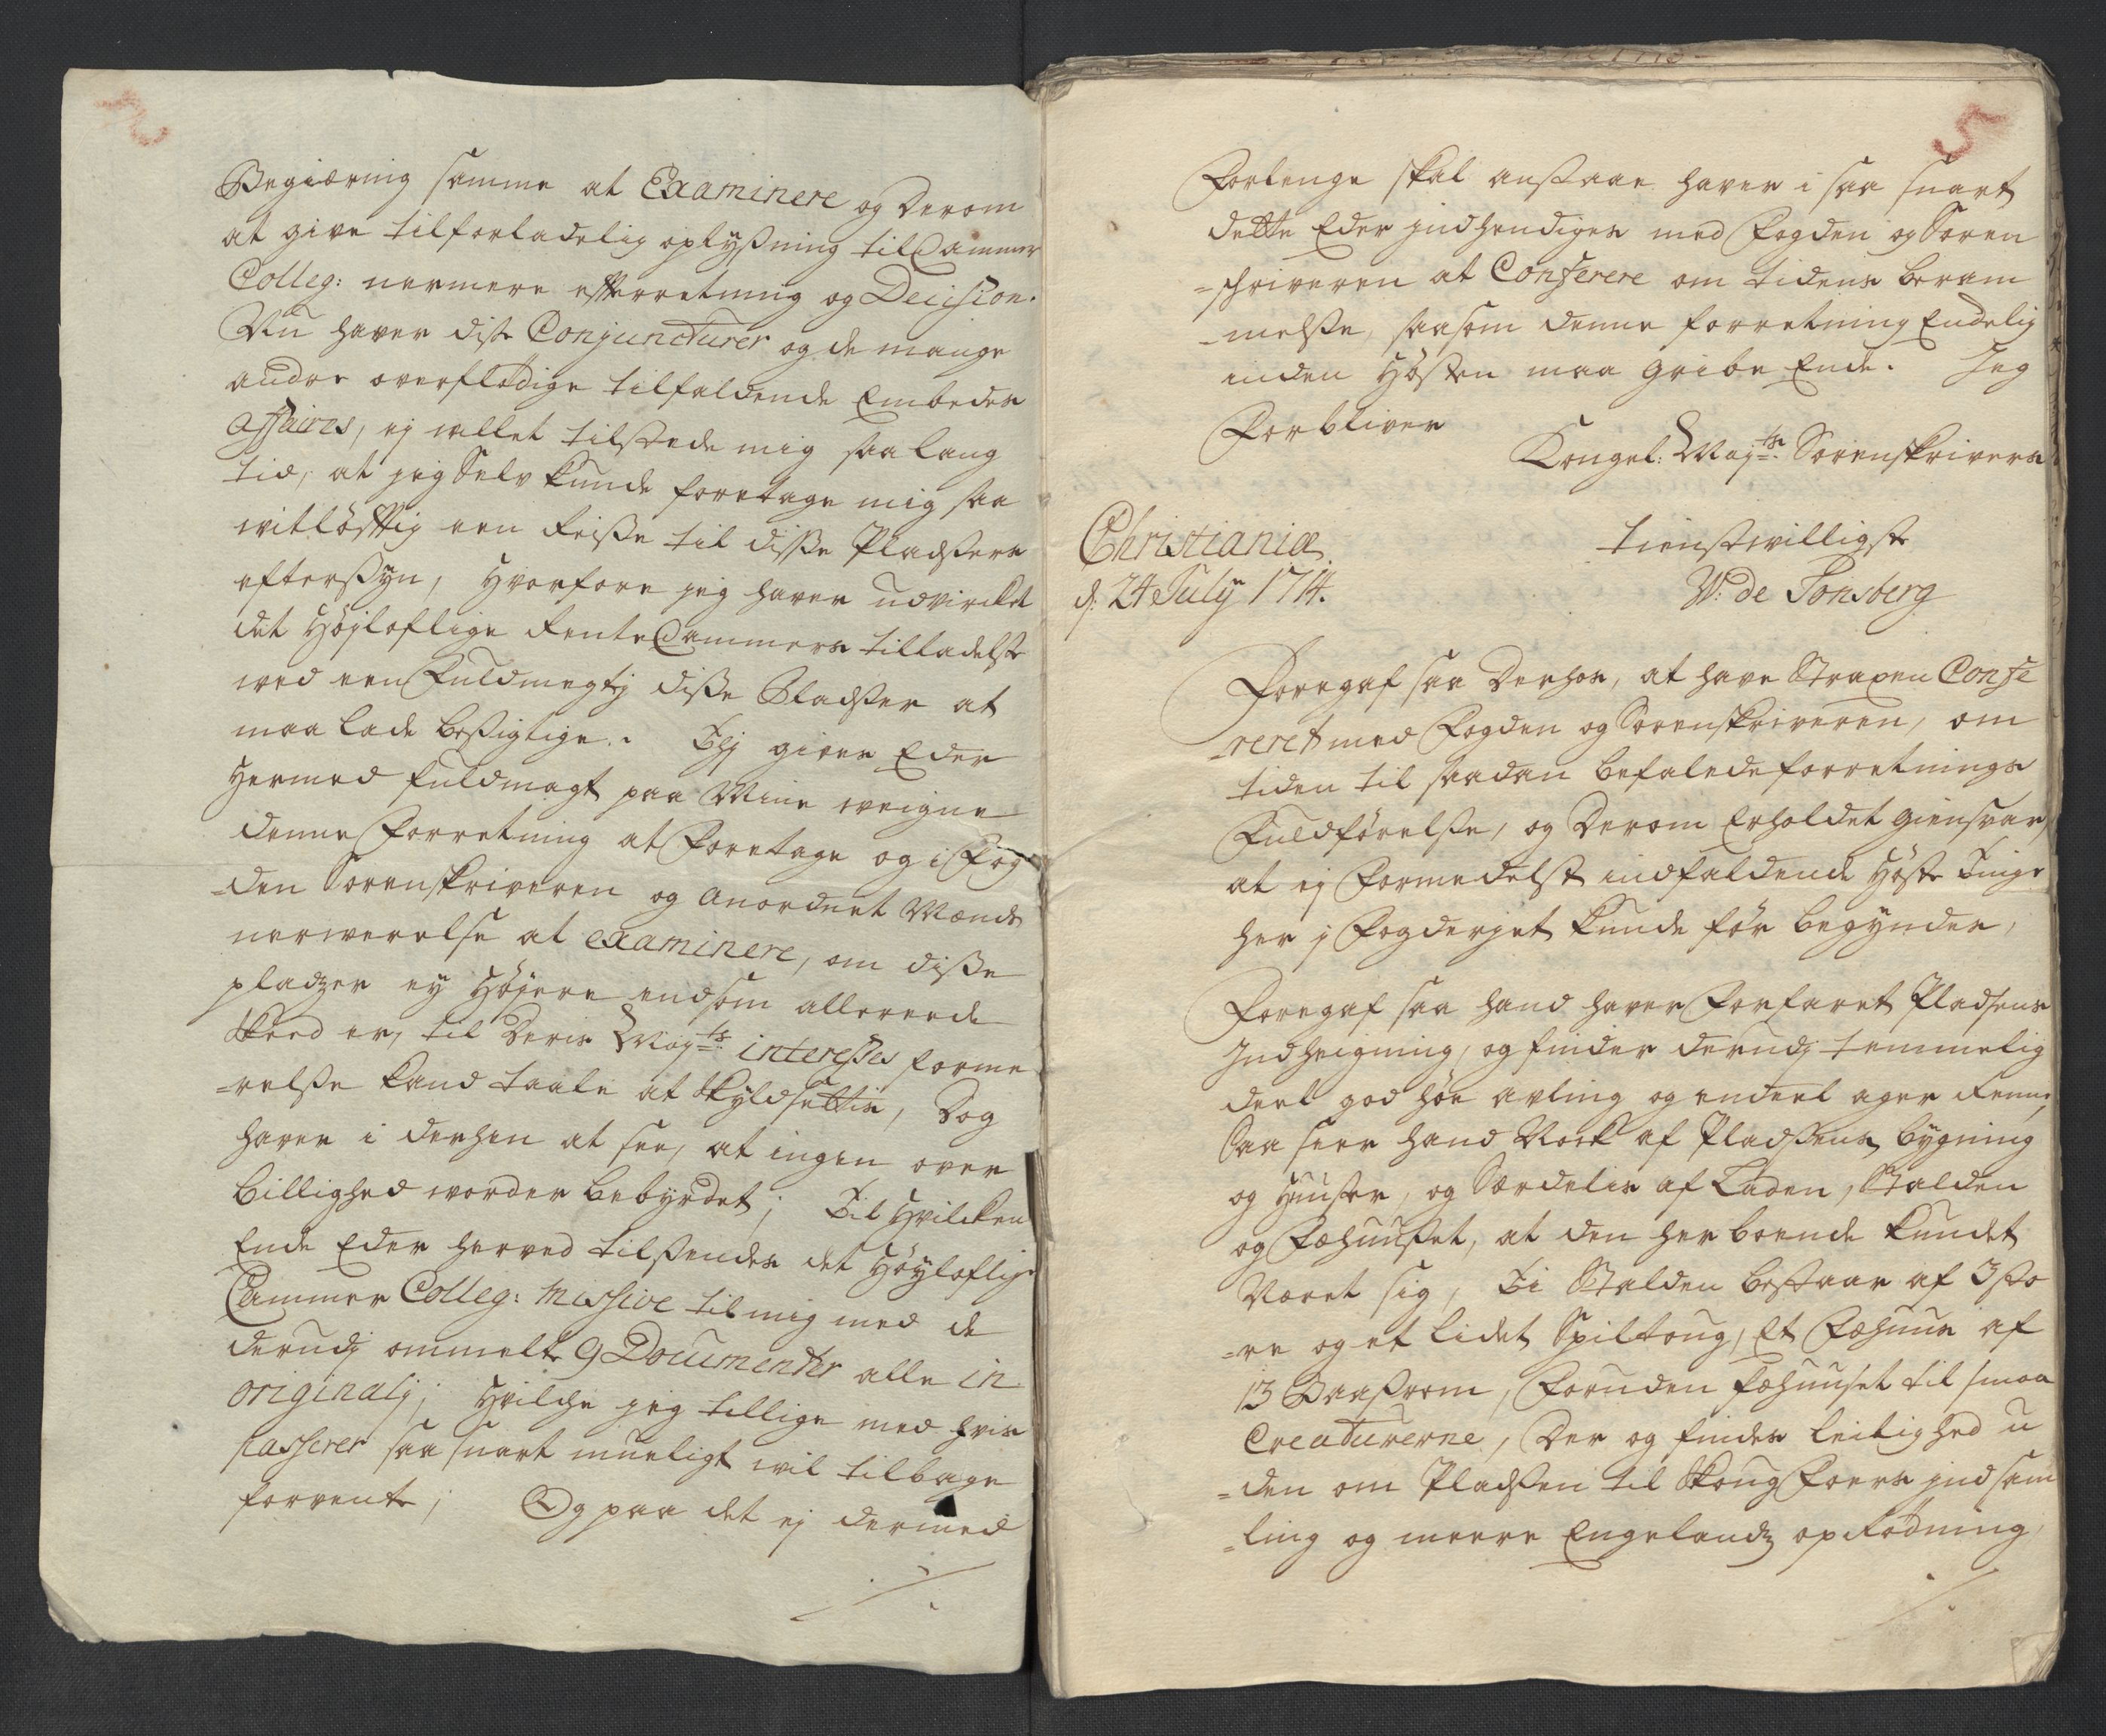 Begiæring samme at Examinere og derom
at give tilforladelig oplysning til Cammer
Colleg: nermere efterretning og Decision.
Nu haver disse Conjuncturer og de mange
andre overflødige tilfaldende Embedes
affaires, ej villet tilstede mig saa lang
tid, at jeg Selv kunde foretage mig saa
vitløfftig een Reise til disse Pladsers
eftersyn, hvorfore jeg haver udvircket
det Høyloflige RenteCammers tilladelse
ved een Fuldmegtig disse Pladser at
maa lade besigtige. Thj gives Eder
hermed fuldmagt paa Mine veigne
denne Forretning at Foretage og i Fog-
-den Sorenskriveren og anordnet Mænds
nerwerelse at examinere, om disse
pladzer ey høyere end som allereede
skeed er, til Deris Mayts interesses forme
-relse kand taale at skyldsettis, Dog
haver i derhen at see, at ingen over
billighed worder bebyrdet; Til hvilcken
Ende Eder herved tilsendes det høyloflige
Cammer Colleg: Missive til mig med de
derudj ommelte 9 Documenter alle in
originalj; hvilche jeg tillige med hvis
passerer saa snart mueligt vil tilbage
forvente; Og paa det ej dermed
./.
5
Forlenge skal anstaae haver i saa snart
dette Eder indhendiges med Fogden og Soren
-schriveren at Conferere om tidens beram
-melse, saasom denne forretning Endelig
inden Høsten maa gribe Ende. Jeg
Forbliver
Kongel: Mayts Sorenskrivers
Christiania
tienstvilligste
d: 24 July 1714.
W: de Tonsberg
Foregaf saa Derhos, at have Straxen Confe
-reret med Fogden og Sorenskriveren, om
tiden til saadan befalede forretnings
Fuldførelse, og derom Erholdet giensvar,
at ej formedelst indfaldende Høste Tinge
her j Fogderjet kunde før begyndes,
Foregaf saa hand haver Forfaret Pladsens
Indheigning, og finder derudj temmelig
deel god høe avling og endeel ager Renne,
Saa seer hand Nock af Pladsens bygning
og Huuser, og Særdelis af Laden, Stalden
og Fæhuuset, at den her boende kundet
Næret sig, Ti Stalden bestaar af 3 sto
-re og et lidet Spiltoug, Et Fæhuus af
13 Baasrom, Foruden Fæhuuset til smaa
Creaturerne, Der og findes leilighed u
-den om Pladsen til Skoug Foers indsam
-ling og meere Engelandz oprødning,
./.